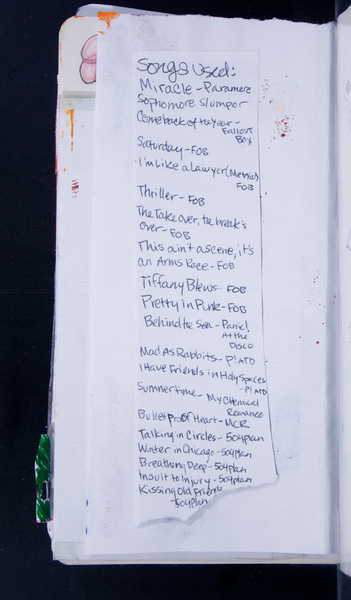 Songs Used:
Miracle - Paramore
Sophomore slump or
Comeback of the Year -
Fallout
Boy
Saturday - FOB
I'm Like a Lawyer (Me + You)
FOB
Thriller - FOB
The Take over, the break's
over - FOB
This ain't a scene, it's
an Arms Race - FOB
Tiffany Blews - FOB
Pretty in Punk - FOB
Behind the Sea - Panic!
At the
Disco
Mad As Rabbits - P!ATD
I Have Friends in Holy Spaces
- P!ATD
Summertime - My Chemical
Romance
Bulletproof Heart - MCR
Talking in Circles - 504plan
Winter in Chicago - 504plan
Breathing Deep - 504plan
Insult to Injury - 504plan
Kissing Old Friends
- 504plan